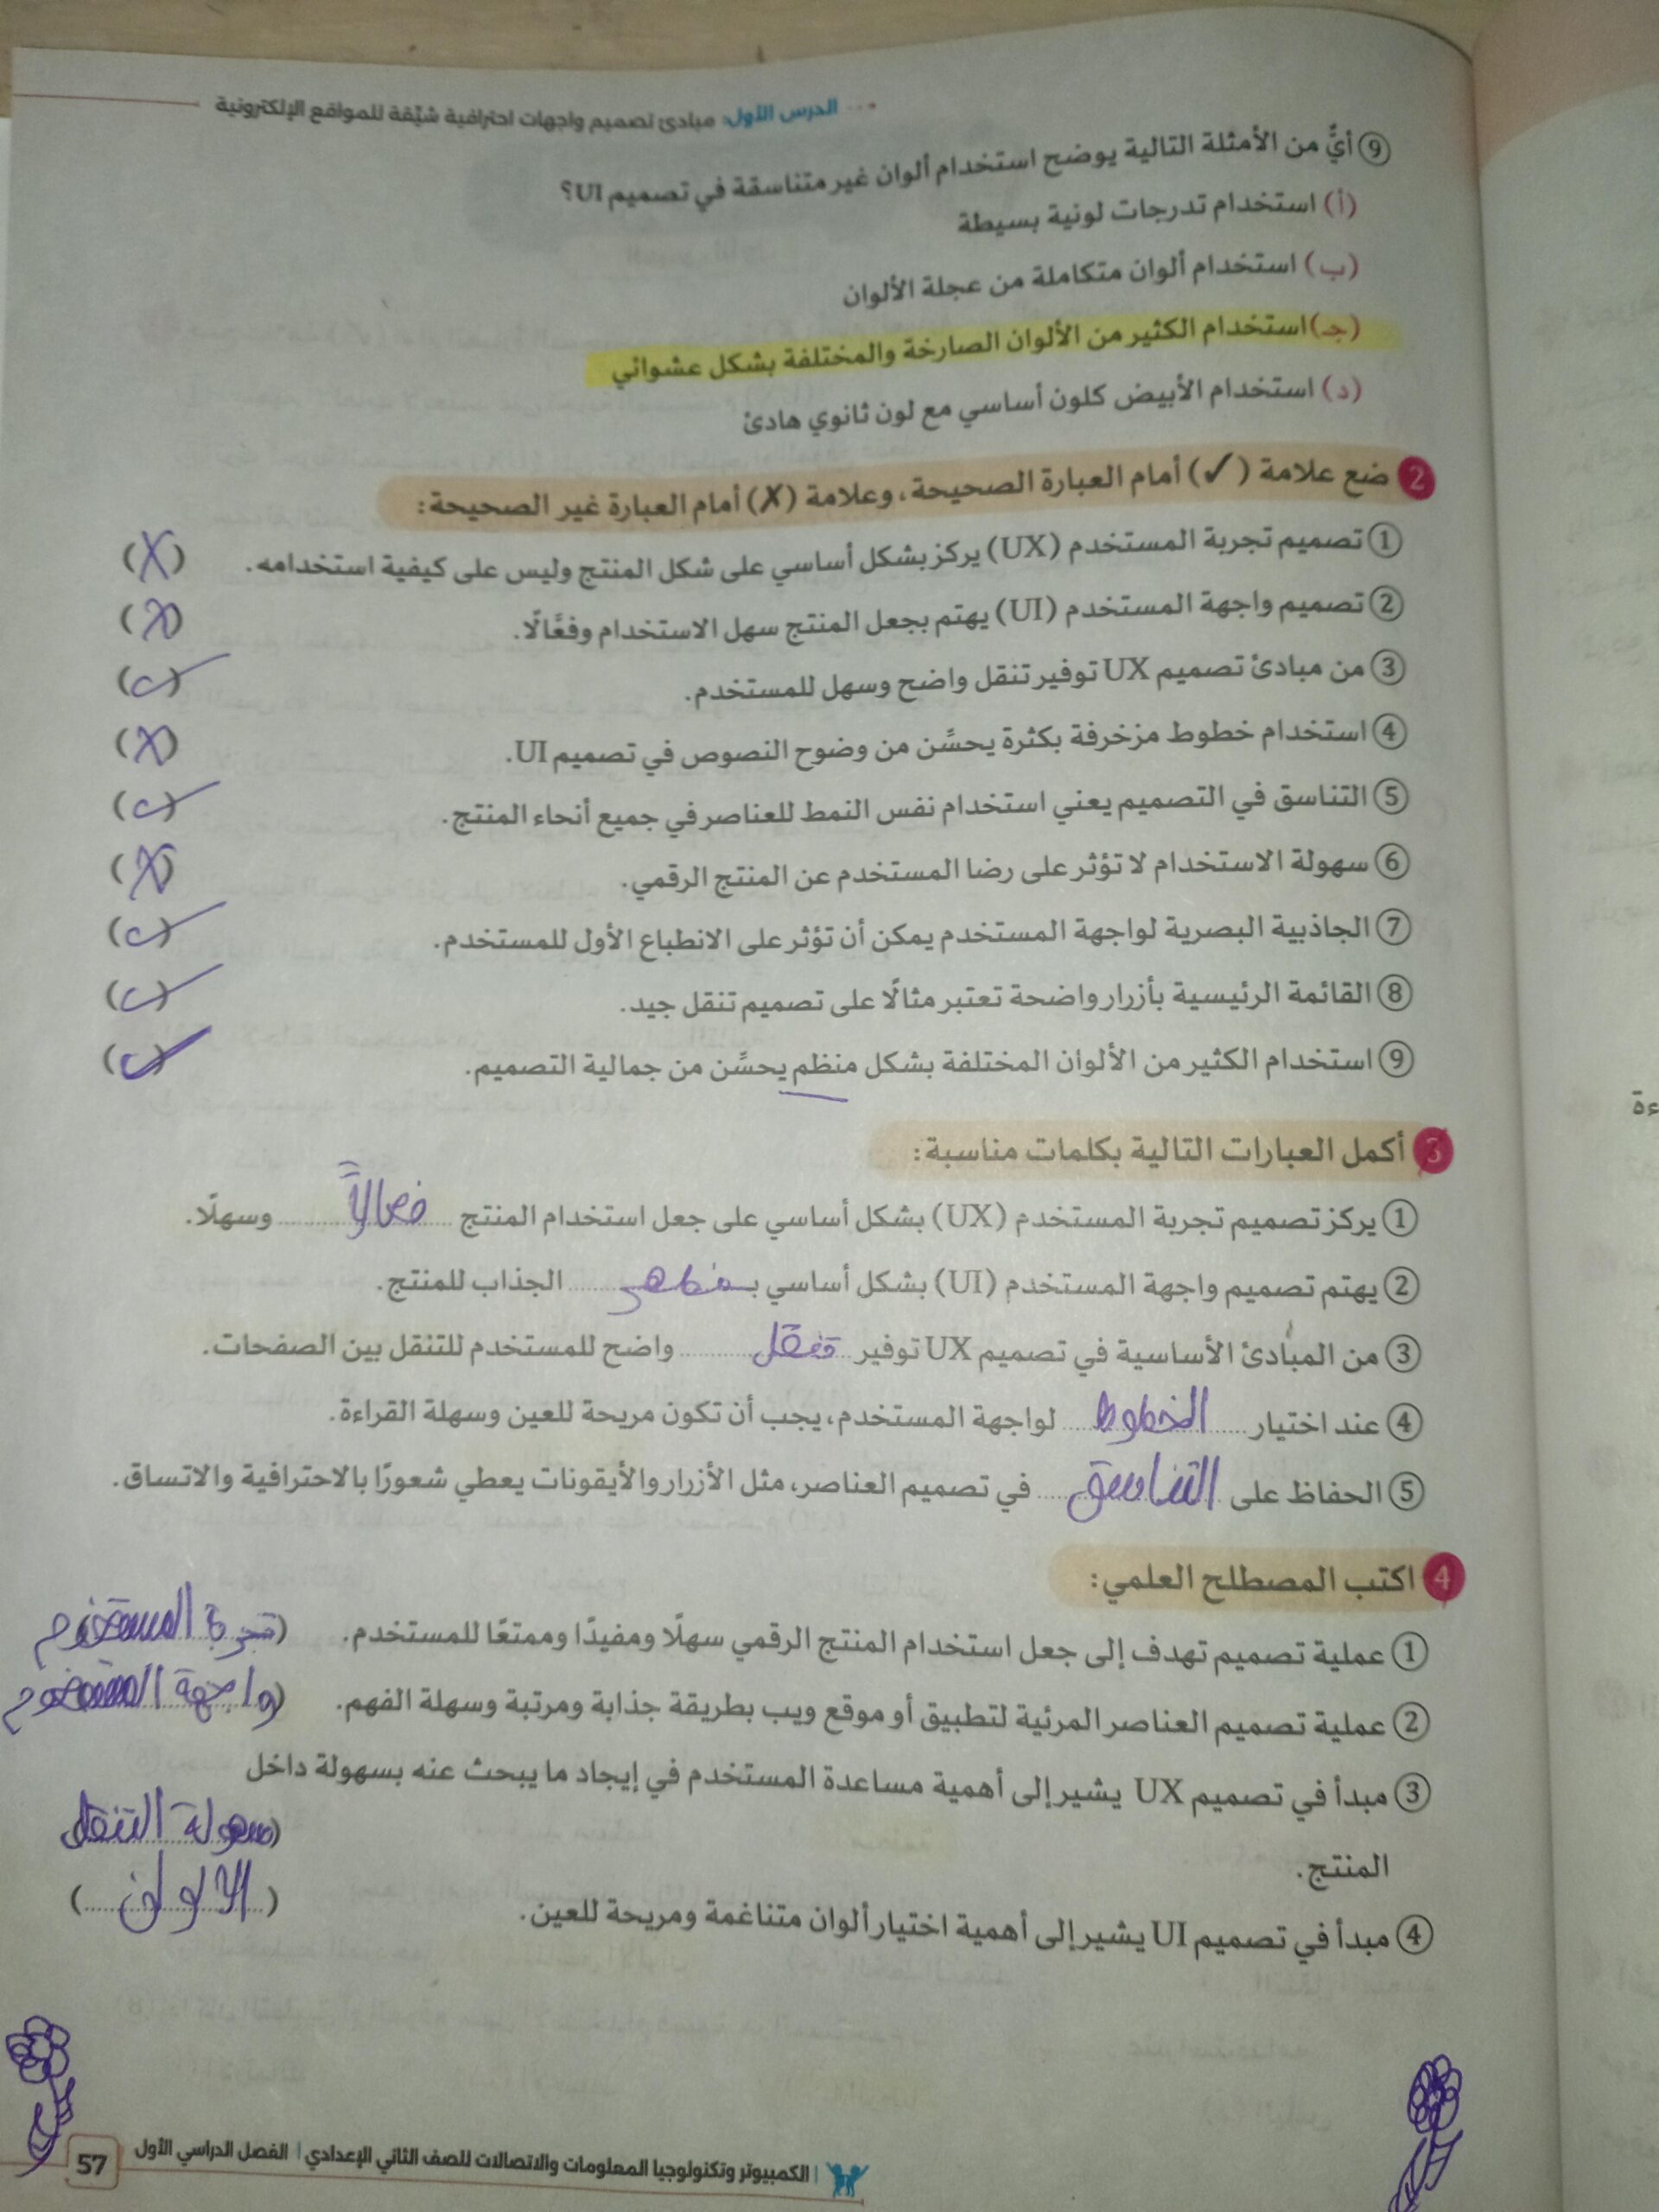 الدرس الأول: مبادئ تصميم واجهات احترافية شيّقة للمواقع الإلكترونية
⑨ أيٌّ من الأمثلة التالية يوضح استخدام ألوان غير متناسقة في تصميم UI؟
(أ) استخدام تدرجات لونية بسيطة
(ب) استخدام ألوان متكاملة من عجلة الألوان
(جـ) استخدام الكثير من الألوان الصارخة والمختلفة بشكل عشوائي
(د) استخدام الأبيض كلون أساسي مع لون ثانوي هادئ
2 ضع علامة (✓) أمام العبارة الصحيحة، وعلامة (✗) أمام العبارة غير الصحيحة:
① تصميم تجربة المستخدم (UX) يركز بشكل أساسي على شكل المنتج وليس على كيفية استخدامه. (✗)
② تصميم واجهة المستخدم (UI) يهتم بجعل المنتج سهل الاستخدام وفعَّالًا. (✗)
③ من مبادئ تصميم UX توفير تنقل واضح وسهل للمستخدم. (✓)
④ استخدام خطوط مزخرفة بكثرة يحسِّن من وضوح النصوص في تصميم UI. (✗)
⑤ التناسق في التصميم يعني استخدام نفس النمط للعناصر في جميع أنحاء المنتج. (✓)
⑥ سهولة الاستخدام لا تؤثر على رضا المستخدم عن المنتج الرقمي. (✗)
⑦ الجاذبية البصرية لواجهة المستخدم يمكن أن تؤثر على الانطباع الأول للمستخدم. (✓)
⑧ القائمة الرئيسية بأزرار واضحة تعتبر مثالًا على تصميم تنقل جيد. (✓)
⑨ استخدام الكثير من الألوان المختلفة بشكل منظم يحسِّن من جمالية التصميم. (✓)
3 أكمل العبارات التالية بكلمات مناسبة:
① يركز تصميم تجربة المستخدم (UX) بشكل أساسي على جعل استخدام المنتج فعالاً وسهلًا.
② يهتم تصميم واجهة المستخدم (UI) بشكل أساسي بـ مظهر الجذاب للمنتج.
③ من المبادئ الأساسية في تصميم UX توفير تنقل واضح للمستخدم للتنقل بين الصفحات.
④ عند اختيار الخطوط لواجهة المستخدم، يجب أن تكون مريحة للعين وسهلة القراءة.
⑤ الحفاظ على التناسق في تصميم العناصر، مثل الأزرار والأيقونات يعطي شعورًا بالاحترافية والاتساق.
4 اكتب المصطلح العلمي:
① عملية تصميم تهدف إلى جعل استخدام المنتج الرقمي سهلًا ومفيدًا وممتعًا للمستخدم. (تجربة المستخدم
② عملية تصميم العناصر المرئية لتطبيق أو موقع ويب بطريقة جذابة ومرتبة وسهلة الفهم. (واجهة المستخدم
③ مبدأ في تصميم UX يشير إلى أهمية مساعدة المستخدم في إيجاد ما يبحث عنه بسهولة داخل
المنتج. (سهولة التنقل
④ مبدأ في تصميم UI يشير إلى أهمية اختيار ألوان متناغمة ومريحة للعين. (الالوان)
الكمبيوتر وتكنولوجيا المعلومات والاتصالات للصف الثاني الإعدادي | الفصل الدراسي الأول
57